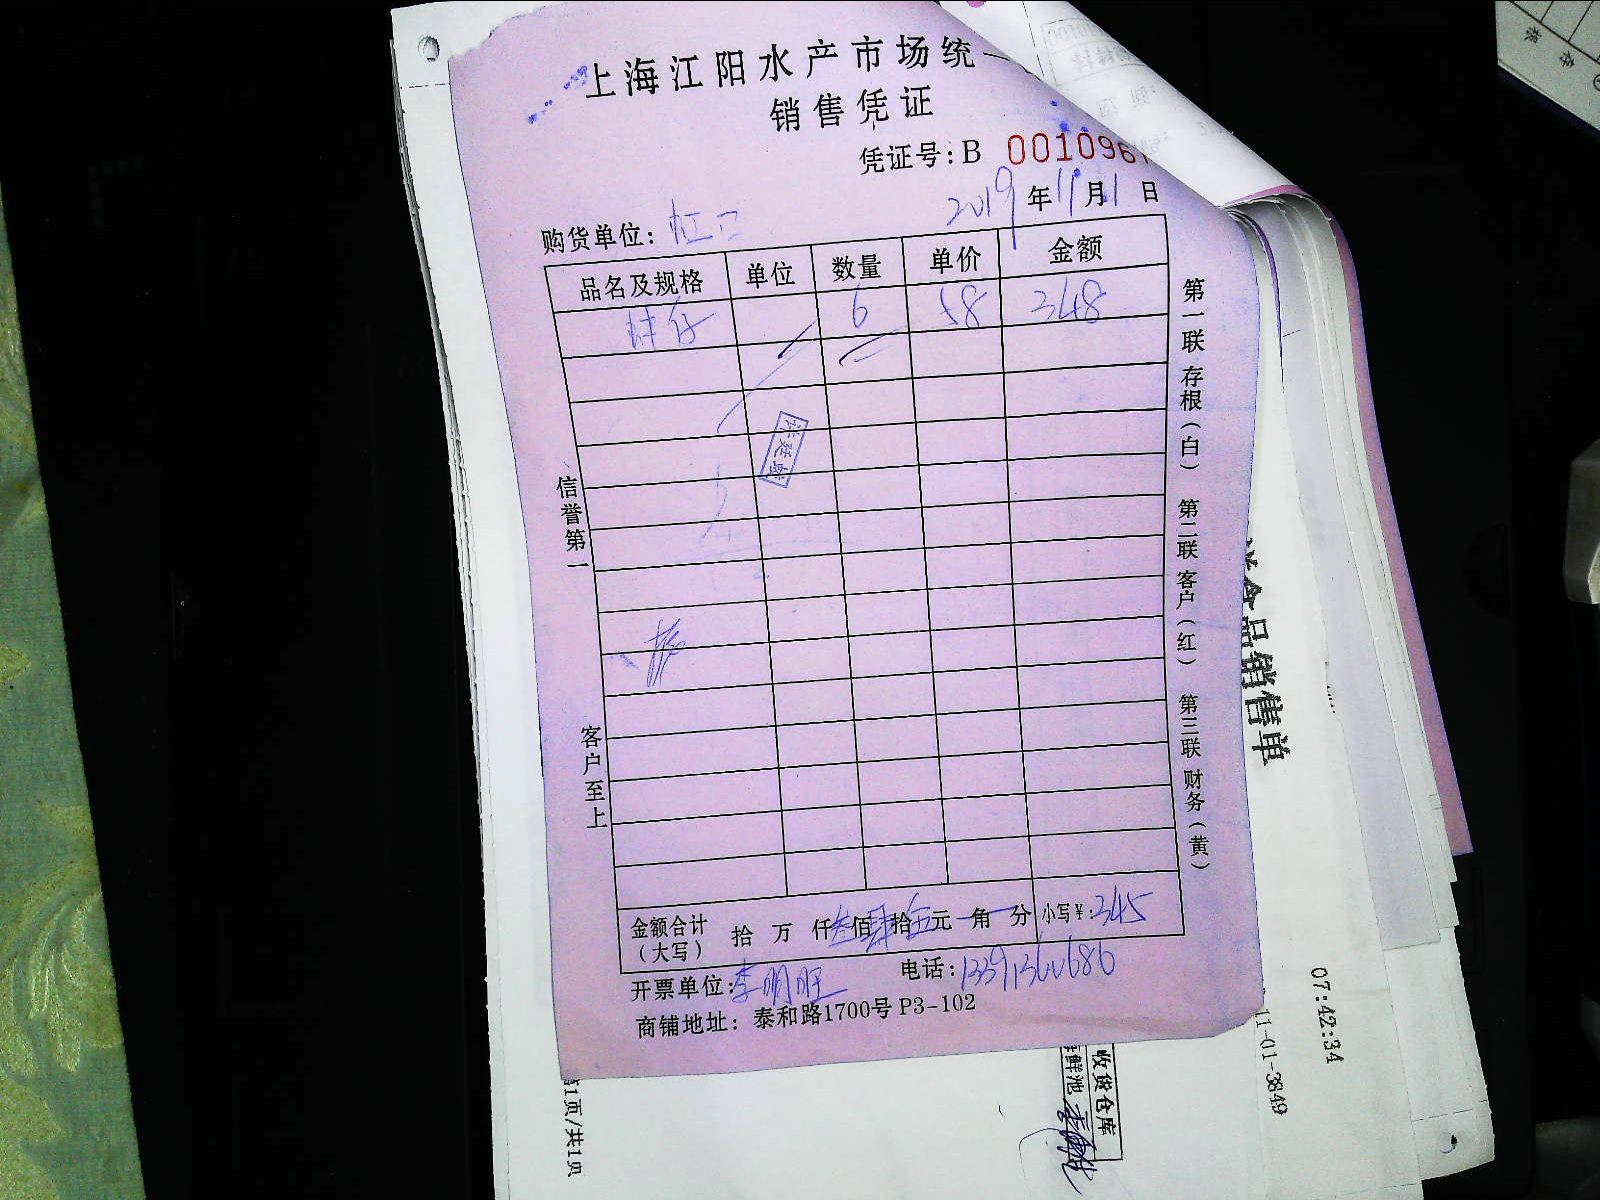 上海江阳水产市场统一
销售凭证
凭证号:B 001096
2019年11月1日
购货单位: 虹口
品名及规格 单位 数量 单价 金额
6 58 348
信誉第一
客户至上
第一联 存根(白) 第二联 客户(红) 第三联 财务(黄)
金额合计(大写) 拾 万 仟叁佰肆拾伍元 角 分 小写¥:345
开票单位:李明旺 电话:13391360686
商铺地址: 泰和路1700号 P3-102
食品销售单
07:42:34
11-01-3849
收货仓库
海鲜池
第1页/共1页